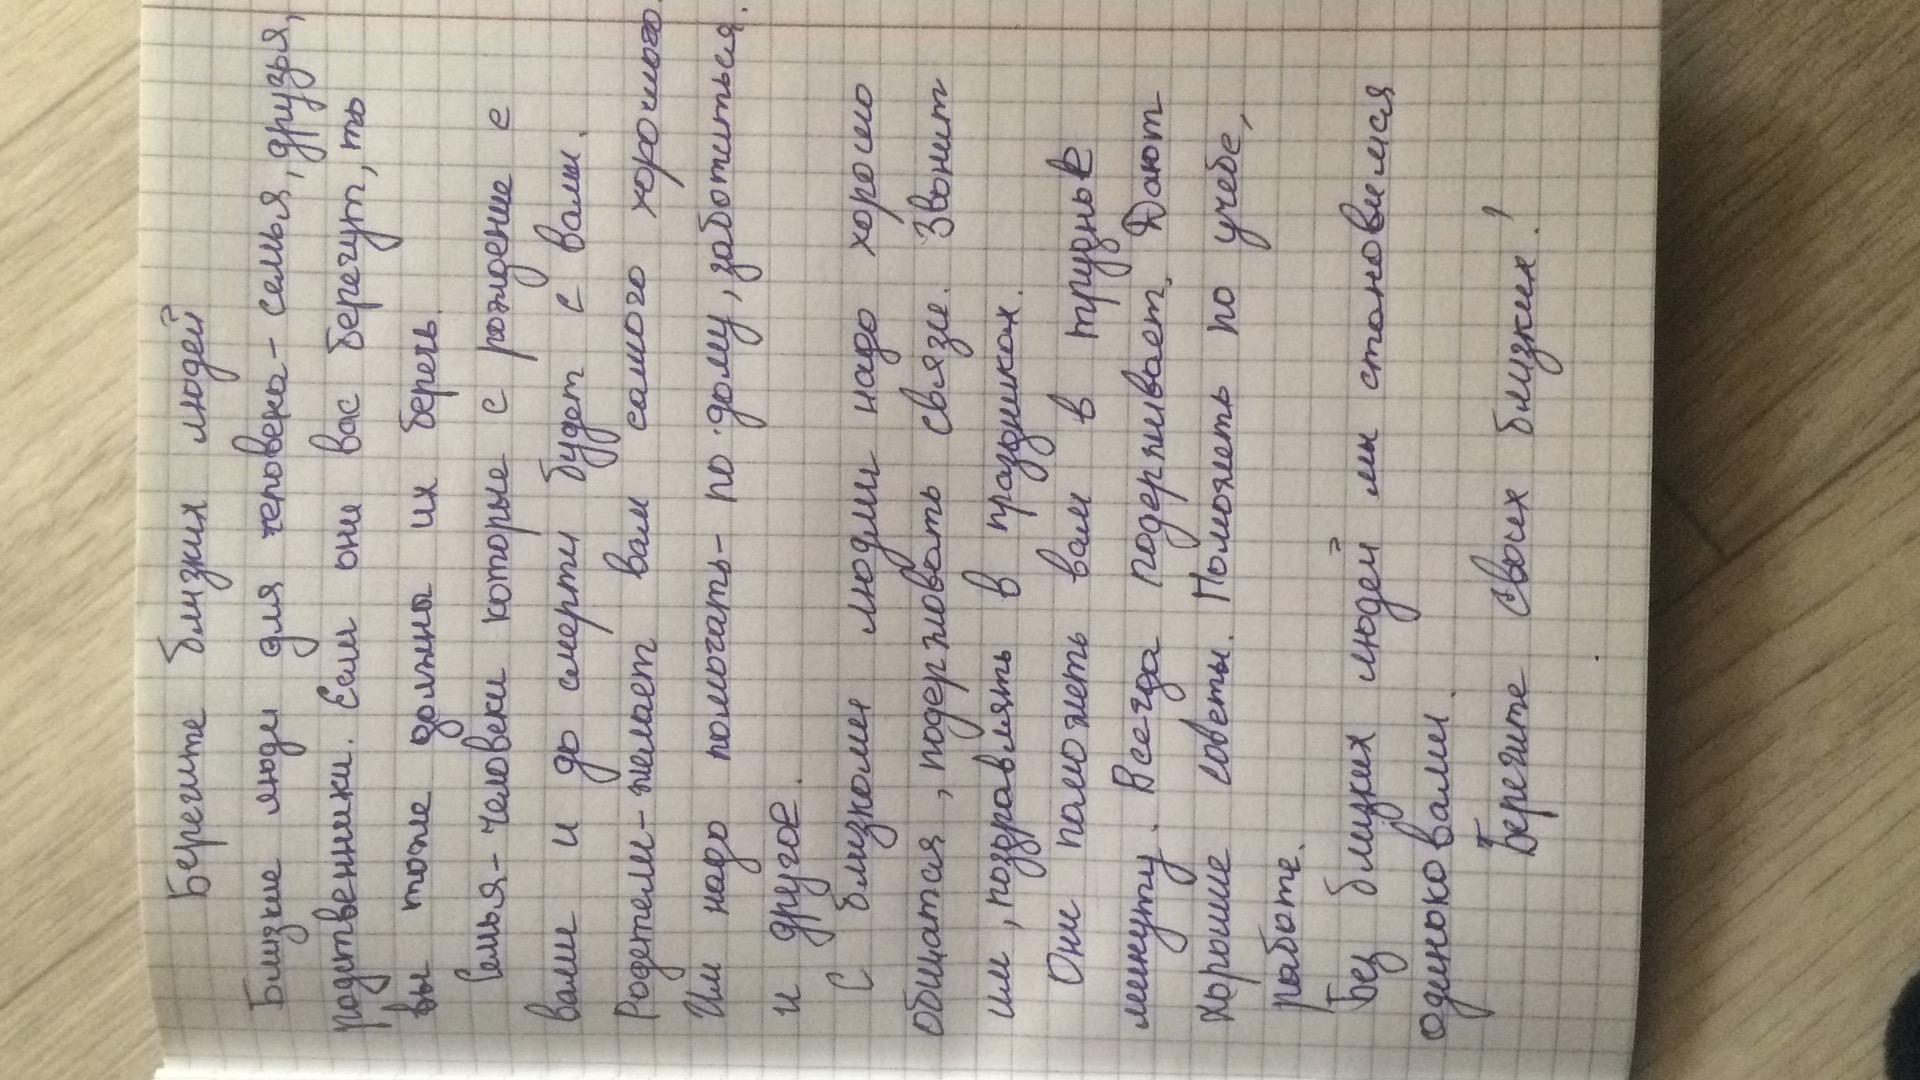 Берегите близких людей
Близкие люди для человека - семья, друзья,
родственники. Если они вас берегут, то
вы тоже должны их беречь.
Семья - человеки которые с рождение е
вами и до смерти будет с вами.
Родетели - желает вам самого хорошого.
Им надо помогать - по дому, заботиться
и другое.
С близкоми людми надо хорошо
общатся, подерживать связе. Звонит
им, поздравлять в праздниках.
Они поможеть вам в трудные
минуту. Всегда подерживает. Дают
хорошие советы. Поможеть по учебе,
работе.
Без близких людей мы становимся
одиноковами.
Берегите своих близких!